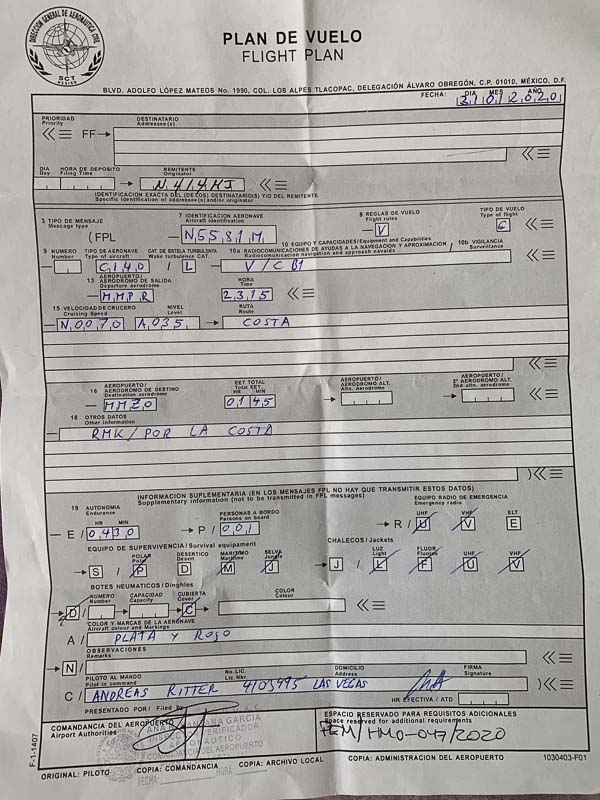 DIRECCIÓN GENERAL DE AERONÁUTICA CIVIL
SCT
MÉXICO
PLAN DE VUELO
FLIGHT PLAN
BLVD. ADOLFO LÓPEZ MATEOS No. 1990, COL. LOS ALPES TLACOPAC, DELEGACIÓN ÁLVARO OBREGÓN, C.P. 01010, MÉXICO, D.F.
FECHA: DIA MES AÑO
31 01 2020
PRIORIDAD
Priority
DESTINATARIO
Addressee(s)
≪≡ FF →
≪≡
DIA
Day
HORA DE DEPOSITO
Filing Time
REMITENTE
Originator
→ N414MJ ≪≡
IDENTIFICACIÓN EXACTA DEL (DE LOS) DESTINATARIO(S) Y/O DEL REMITENTE
Specific identification of addressee(s) and/or originator
3 TIPO DE MENSAJE
Message type
(FPL
7 IDENTIFICACION AERONAVE
Aircraft Identification
N5581M
8 REGLAS DE VUELO
Flight rules
V
TIPO DE VUELO
Type of flight
G
9 NUMERO
Number
TIPO DE AERONAVE
Type of aircraft
C140
CAT. DE ESTELA TURBULENTA
Wake turbulence CAT.
/ L
10 EQUIPO Y CAPACIDADES/Equipment and Capabilities
10a RADIOCOMUNICACIONES DE AYUDAS A LA NAVEGACION Y APROXIMACION
Radiocomunication navigation and approach navaids
V/C B1
10b VIGILANCIA
Surveillance
13 AEROPUERTO/
AERÓDROMO DE SALIDA
Departure aerodrome
MMPR
HORA
Time
2315 ≪≡
15 VELOCIDAD DE CRUCERO
Cruising Speed
N0070
NIVEL
Level
A035
RUTA
Route
→ COSTA
≪≡
16 AEROPUERTO/
AERODROMO DE DESTINO
Destination aerodrome
MMZO
EET TOTAL
Total EET.
HR MIN
0145
AEROPUERTO/
AERODROMO ALT.
Altn. Aerodrome
2º AEROPUERTO/
AERODROMO ALT.
2nd altn. aerodrome
≪≡
18 OTROS DATOS
Other information
RMK/POR LA COSTA
)≪≡
INFORMACION SUPLEMENTARIA (EN LOS MENSAJES FPL NO HAY QUE TRANSMITIR ESTOS DATOS)
Supplementary information (not to be transmitted in FPL messages)
19 AUTONOMIA
Endurance
HR MIN
E / 0430
PERSONAS A BORDO
Persons on board
→ P / 001
EQUIPO RADIO DE EMERGENCIA
Emergency radio
UHF VHF ELT
→ R / U V E
EQUIPO DE SUPERVIVENCIA/Survival equipament
POLAR
Polar
DESERTICO
Desert
MARITIMO
Maritime
SELVA
Jungle
→ S / P D M J
CHALECOS / Jackets
LUZ
Light
FLUOR
Fluores
UHF VHF
→ J / L F U V
BOTES NEUMATICOS / Dinghles
NUMERO
Number
CAPACIDAD
Capacity
CUBIERTA
Cover
COLOR
Colour
→ D / → → C → ≪≡
COLOR Y MARCAS DE LA AERONAVE
Aircraft colour and Markings
A / PLATA Y ROJO
OBSERVACIONES
Remarks
→ N / ≪≡
PILOTO AL MANDO
Pilot in command
No. LIC.
Lic. Nbr.
DOMICILIO
Address
FIRMA
Signature
C / ANDREAS RITTER 4105495 LAS VEGAS )≪≡
HR EFECTIVA / ATD
PRESENTADO POR / Filed by
COMANDANCIA DEL AEROPUERTO
Airport Authorities
GARCIA
VERIFICADOR
AERONAUTICO
COMANDANCIA DEL AEROPUERTO
FECHA HORA
ESPACIO RESERVADO PARA REQUISITOS ADICIONALES
Space reserved for additional requirements
/HMO-047/2020
F-1-1407
ORIGINAL: PILOTO COPIA: COMANDANCIA COPIA: ARCHIVO LOCAL COPIA: ADMINISTRACION DEL AEROPUERTO
1030403-F01